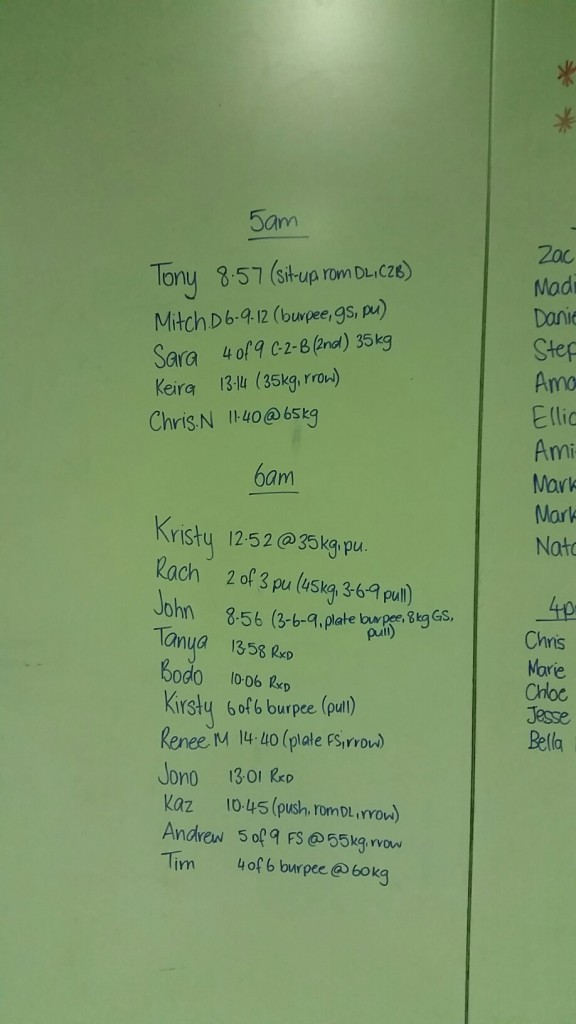 5am
Tony 8.57 (sit-up rom DL, C2B)
Mitch.D 6-9-12 (burpee, gs, pu)
Sara 4 of 9 C-2-B (2nd) 35kg
Keira 13.14 (35kg, rrow)
Chris.N 11.40 @ 65kg
6am
Kristy 12.52 @ 35kg, pu.
Rach 2 of 3 pu (45kg, 3-6-9 pull)
John 8.56 (3-6-9, plate burpee, 8kg GS,
pull)
Tanya 13.58 RxD
Bodo 10.06 RxD
Kirsty 6 of 6 burpee (pull)
Renee M 14.40 (plate FS, rrow)
Jono 13.01 RxD
Kaz 10.45 (push, rom DL, rrow)
Andrew 5 of 9 FS @ 55kg, rrow
Tim 4 of 6 burpee @ 60kg
*
*
Zac
Madi
Danie
Step
Ama
Ellio
Ami
Mark
Mark
Nata
4p
Chris
Marie
Chloe
Jesse
Bella